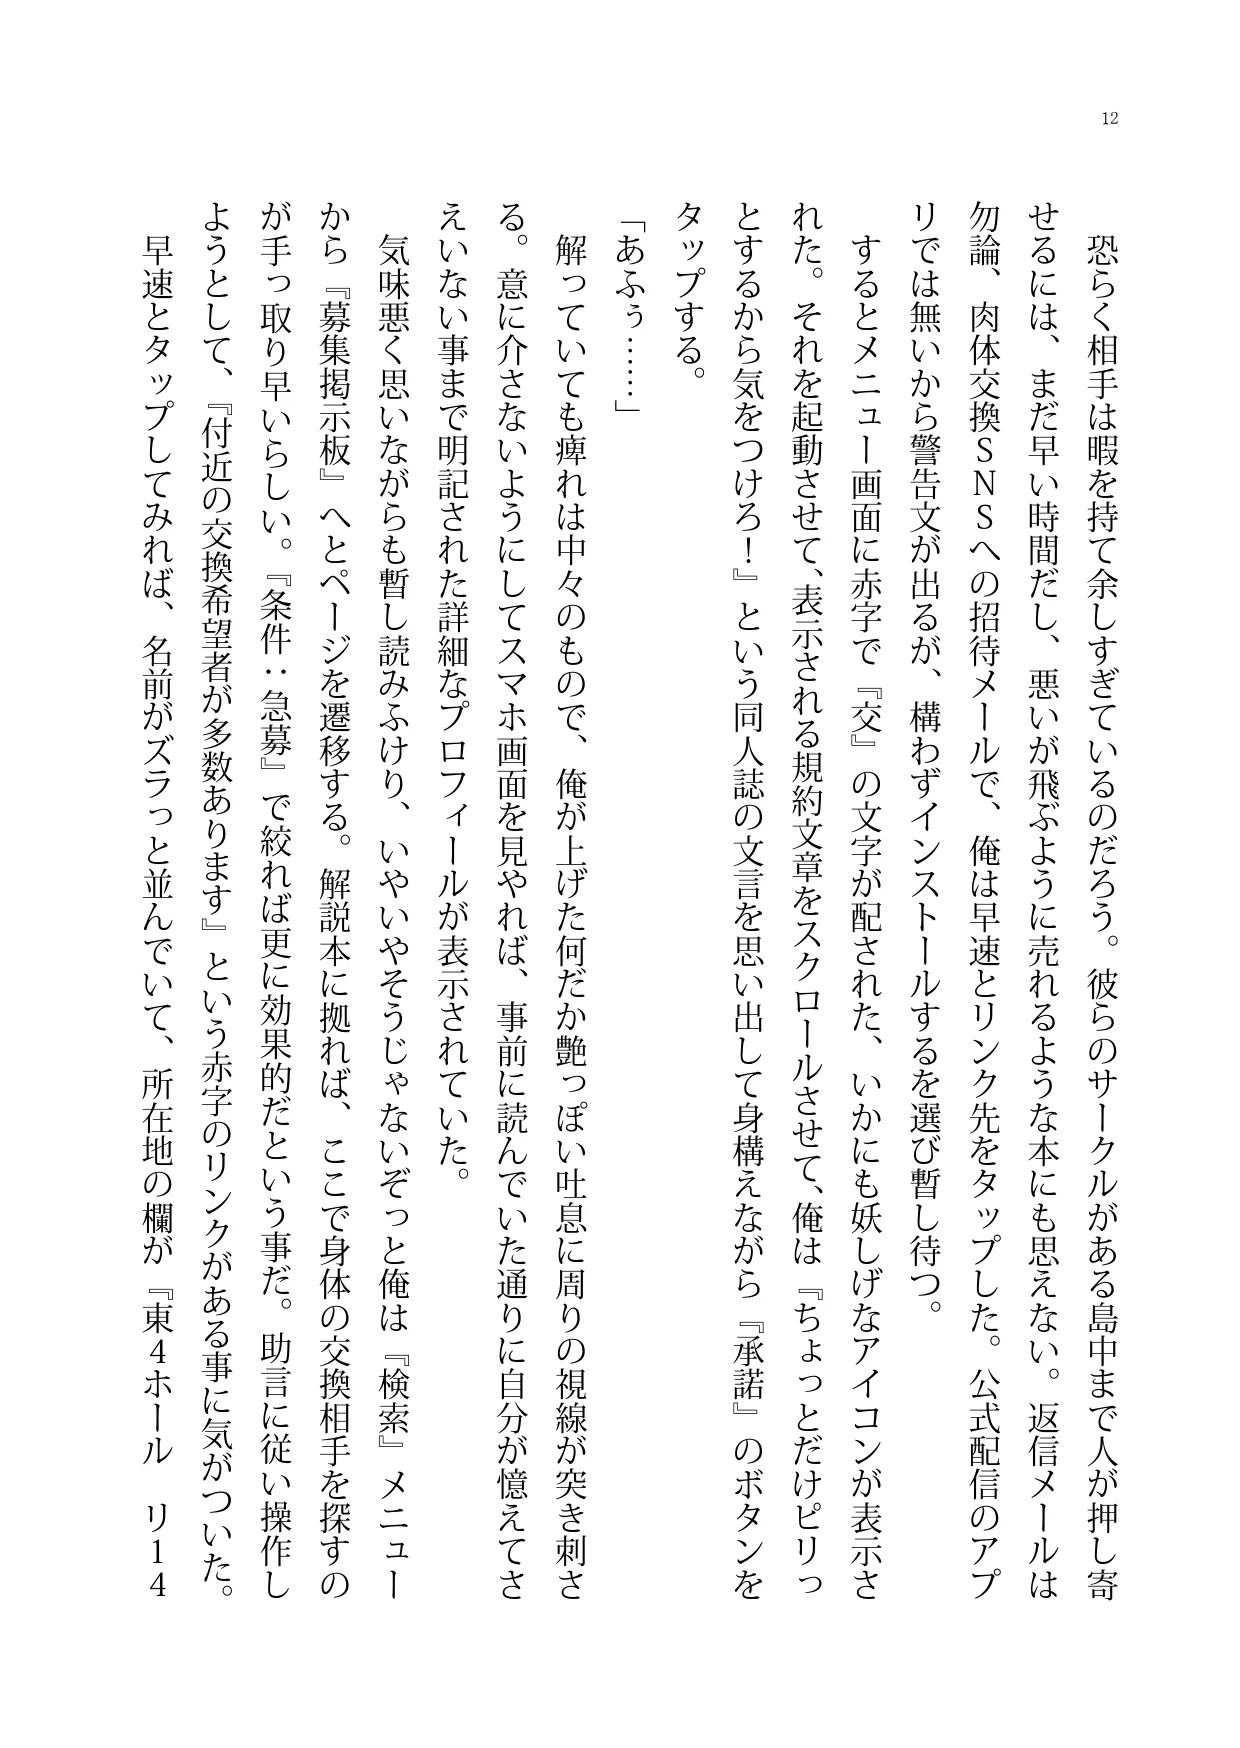 12
　恐らく相手は暇を持て余しすぎているのだろう。彼らのサークルがある島中まで人が押し寄
せるには、まだ早い時間だし、悪いが飛ぶように売れるような本にも思えない。返信メールは
勿論、肉体交換ＳＮＳへの招待メールで、俺は早速とリンク先をタップした。公式配信のアプ
リでは無いから警告文が出るが、構わずインストールするを選び暫し待つ。
　するとメニュー画面に赤字で『交』の文字が配された、いかにも妖しげなアイコンが表示さ
れた。それを起動させて、表示される規約文章をスクロールさせて、俺は『ちょっとだけピリっ
とするから気をつけろ！』という同人誌の文言を思い出して身構えながら『承諾』のボタンを
タップする。
「あふぅ……」
　解っていても痺れは中々のもので、俺が上げた何だか艶っぽい吐息に周りの視線が突き刺さ
る。意に介さないようにしてスマホ画面を見やれば、事前に読んでいた通りに自分が憶えてさ
えいない事まで明記された詳細なプロフィールが表示されていた。
　気味悪く思いながらも暫し読みふけり、いやいやそうじゃないぞっと俺は『検索』メニュー
から『募集掲示板』へとページを遷移する。解説本に拠れば、ここで身体の交換相手を探すの
が手っ取り早いらしい。『条件：急募』で絞れば更に効果的だという事だ。助言に従い操作し
ようとして、『付近の交換希望者が多数あります』という赤字のリンクがある事に気がついた。
　早速とタップしてみれば、名前がズラっと並んでいて、所在地の欄が『東４ホール　リ１４